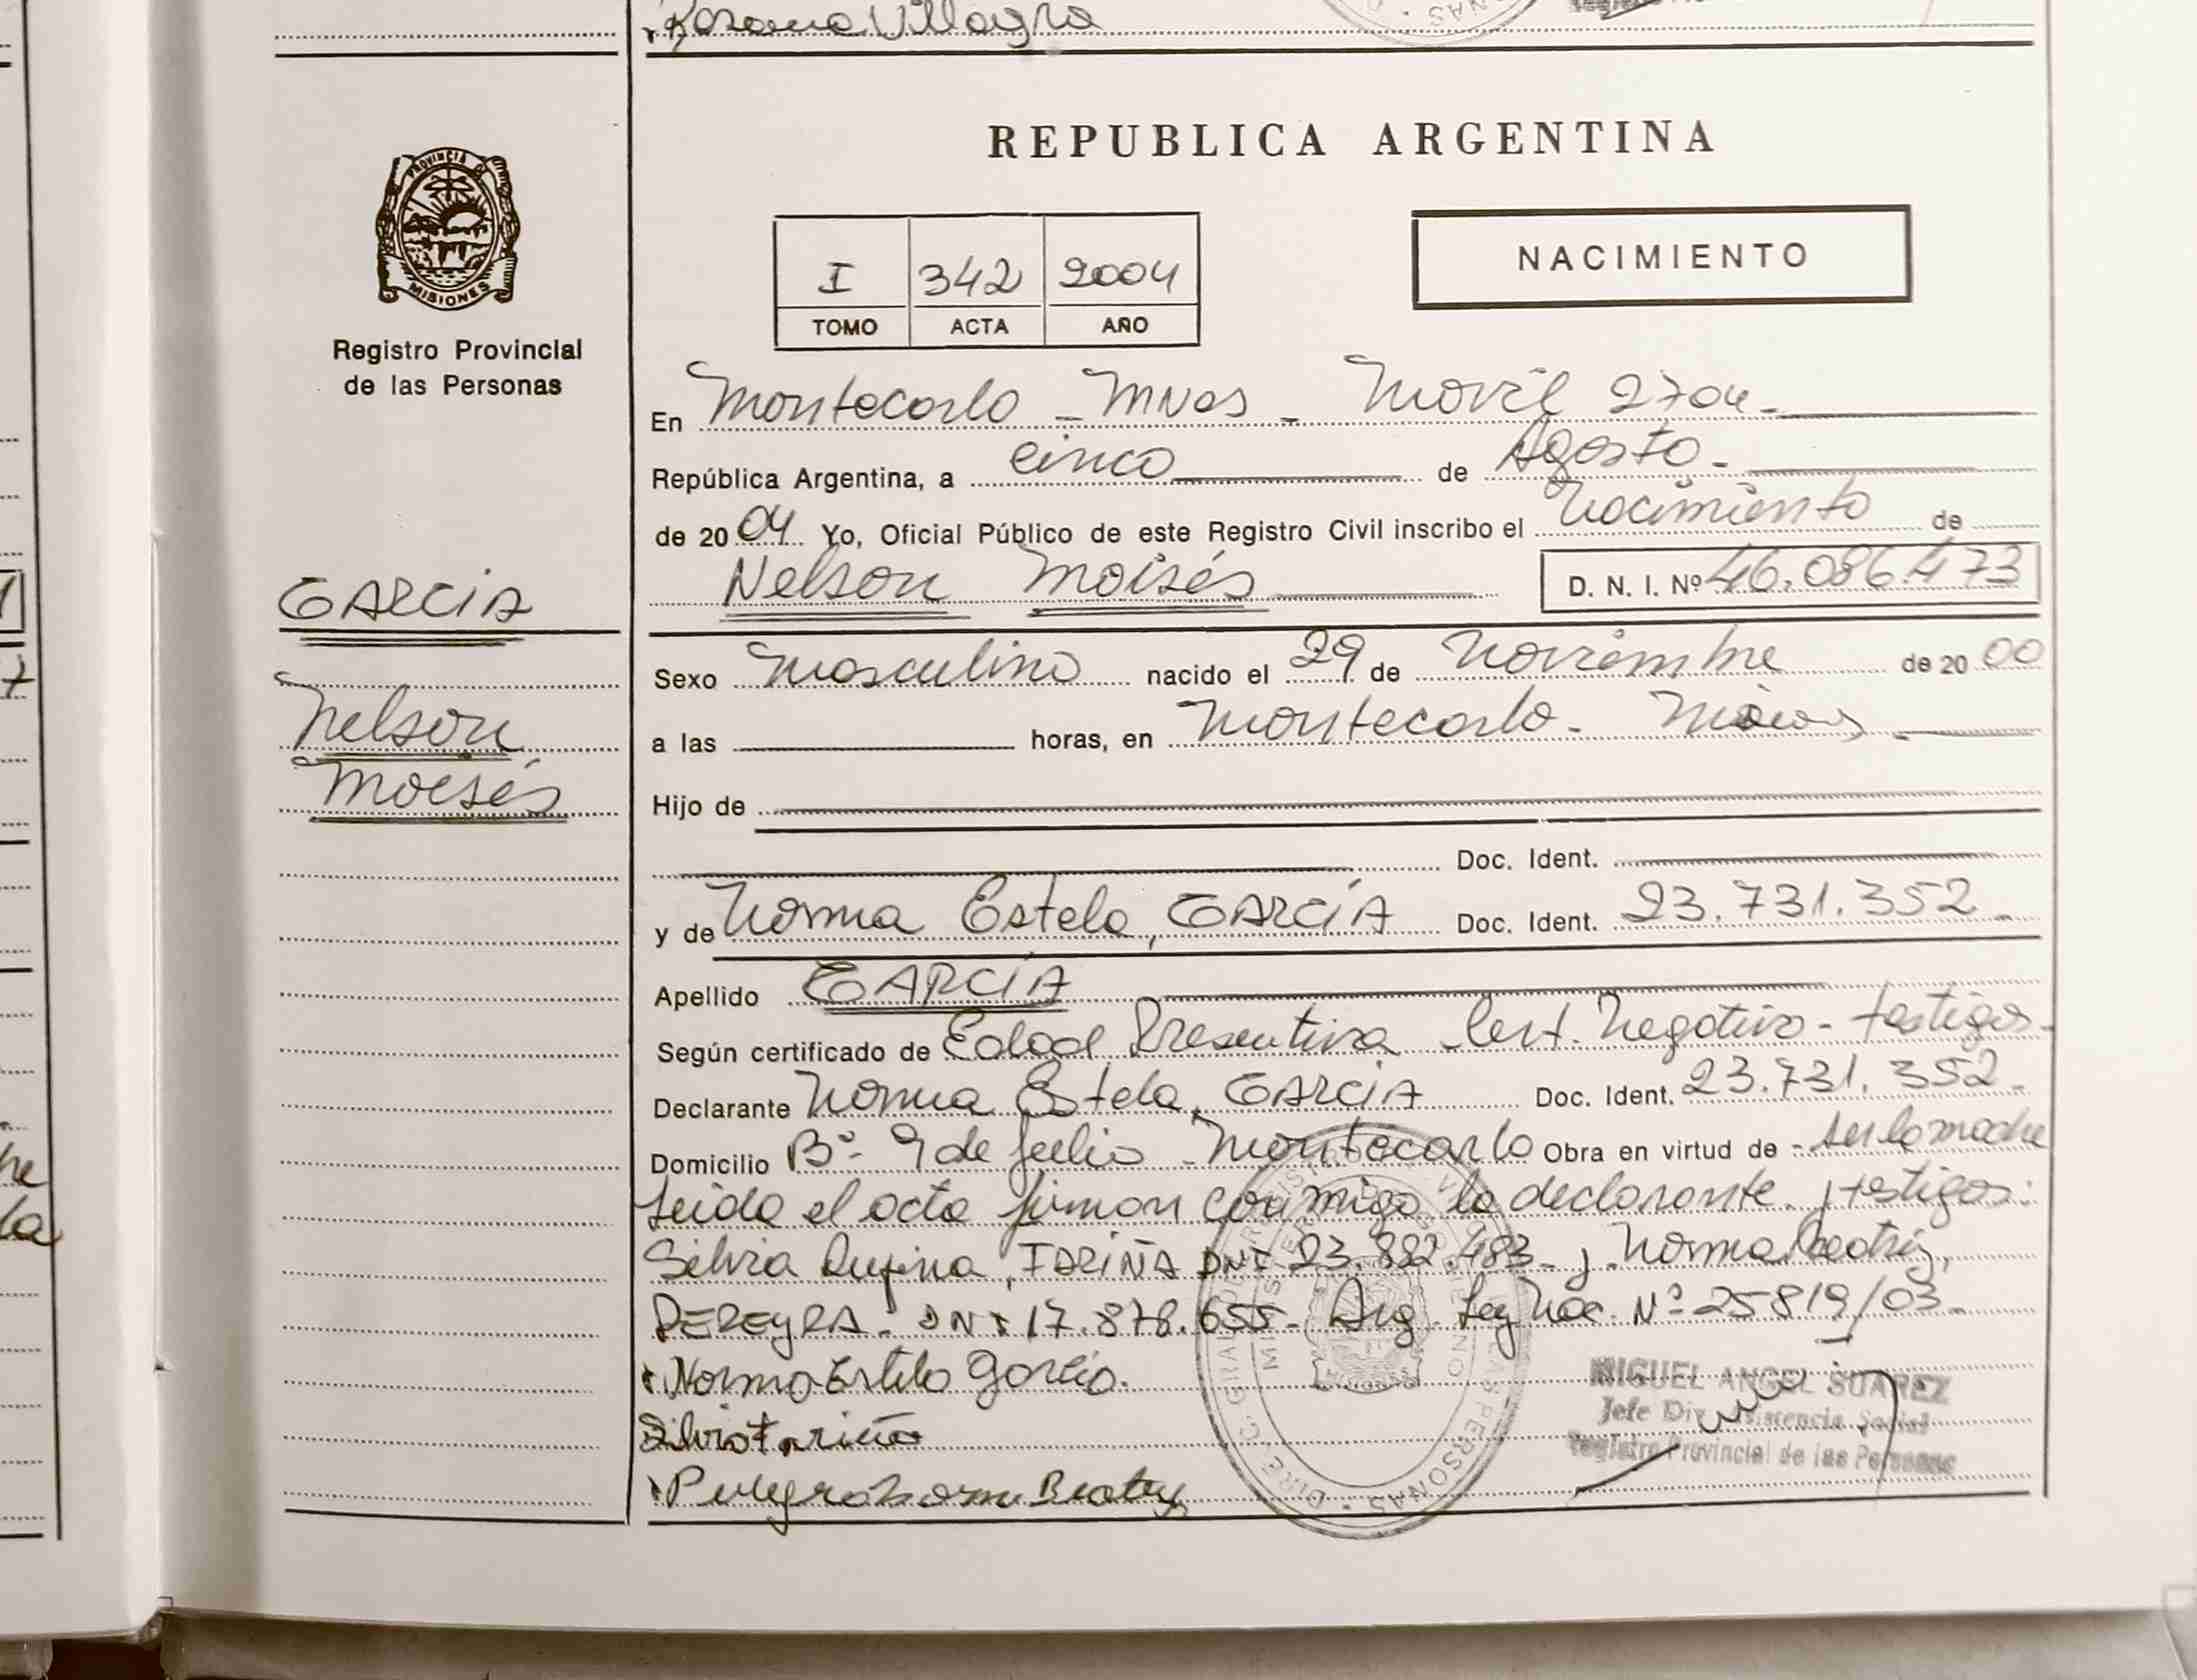 Rosana Villagra
PROVINCIA DE
MISIONES
Registro Provincial
de las Personas
REPUBLICA ARGENTINA
I 342 2004
TOMO ACTA AÑO
NACIMIENTO
En Montecarlo - Mnes - Movil 2704-
República Argentina, a cinco de Agosto -
de 2004 Yo, Oficial Público de este Registro Civil inscribo el Nacimiento de
Nelson Moisés D. N. I. Nº 46.086.473
GARCIA
Nelson
Moisés
Sexo Masculino nacido el 29 de Noviembre de 2000
a las horas, en Montecarlo - Mnes -
Hijo de
Doc. Ident.
y de Norma Estela, GARCÍA Doc. Ident. 23.731.352 -
Apellido GARCÍA
Según certificado de Edad Presentiva - Cert. Negativo - testigos -
Declarante Norma Estela, GARCIA Doc. Ident. 23.731.352 -
Domicilio Bº 9 de Julio - Montecarlo Obra en virtud de - ser la madre
Leida el acta firman conmigo la declarante y testigos:
Silvia Rufina, FARIÑA DNI 23.882.483 - y Norma Beatriz,
PEREYRA - DNI 17.878.655 - Arg. Ley Nac. Nº 25819/03 -
Norma Estela Garcia.
Silvia Fariña
Pereyra Norma Beatriz
MIGUEL ANGEL SUAREZ
Jefe Div. Asistencia Social
Registro Provincial de las Personas